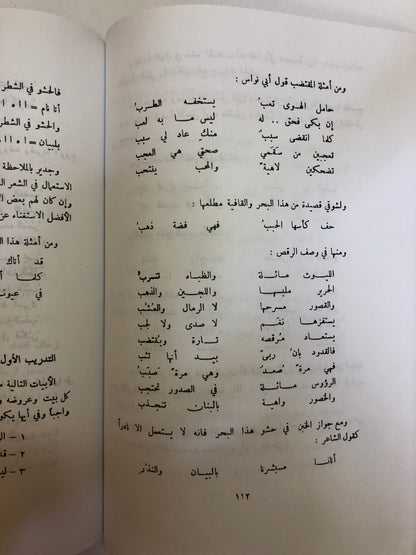 ومن أمثلة المقتضب قول أبي نواس :
حامل الهوى تعبُ يستخفه الطربُ
إن بكى فحق .. له ليس ما به لعب
كلما انقضى سببٌ منكِ عاد لي سبب
تعجبين من سقمي صحتي هي العجب
تضحكين لاهيةً والمحب ينتحب
ولشوقي قصيدة من هذا البحر والقافية مطلعها :
حف كأسها الحببُ فهي فضة ذهبُ
ومنها في وصف الرقص :
الليوث مائلة والظباء تنسربُ
الحرير ملبسها واللجين والذهب
والقصور مسرحها لا الرمال والعُشُب
يستفزها نغم لا صدى ولا لجب
يستعاد مُرقصه تارة ويُقتضب
فالقدود بانُ ربىً بيد أنها تثب
فهي مرةً صُعدٌ وهي مرةً صَبَبُ
الرؤوس مائلة في الصدور تحتجب
والخصور واهية بالبنان تنجذب
ومع جواز الخبن في حشو هذا البحر فانه لا يستعمل الا نادراً
كقول الشاعر :
أتانا مبشرنا بالبيان والنذر
١١٢
فالحشو في الشطر
والحشو في الشطر
وجدير بالملاحظة
الاستعمال في الشعر
وإن كان لهم بعض
الأفضل الاستغناء عن
ومن أمثلة هذا
قد أتاك
كلما
في عيونـ
التدريب الأول
الأبيات التالية
كل بيت وعروضه و
واجباً وفي أيها يكو
١ –
٢ –
٣ –